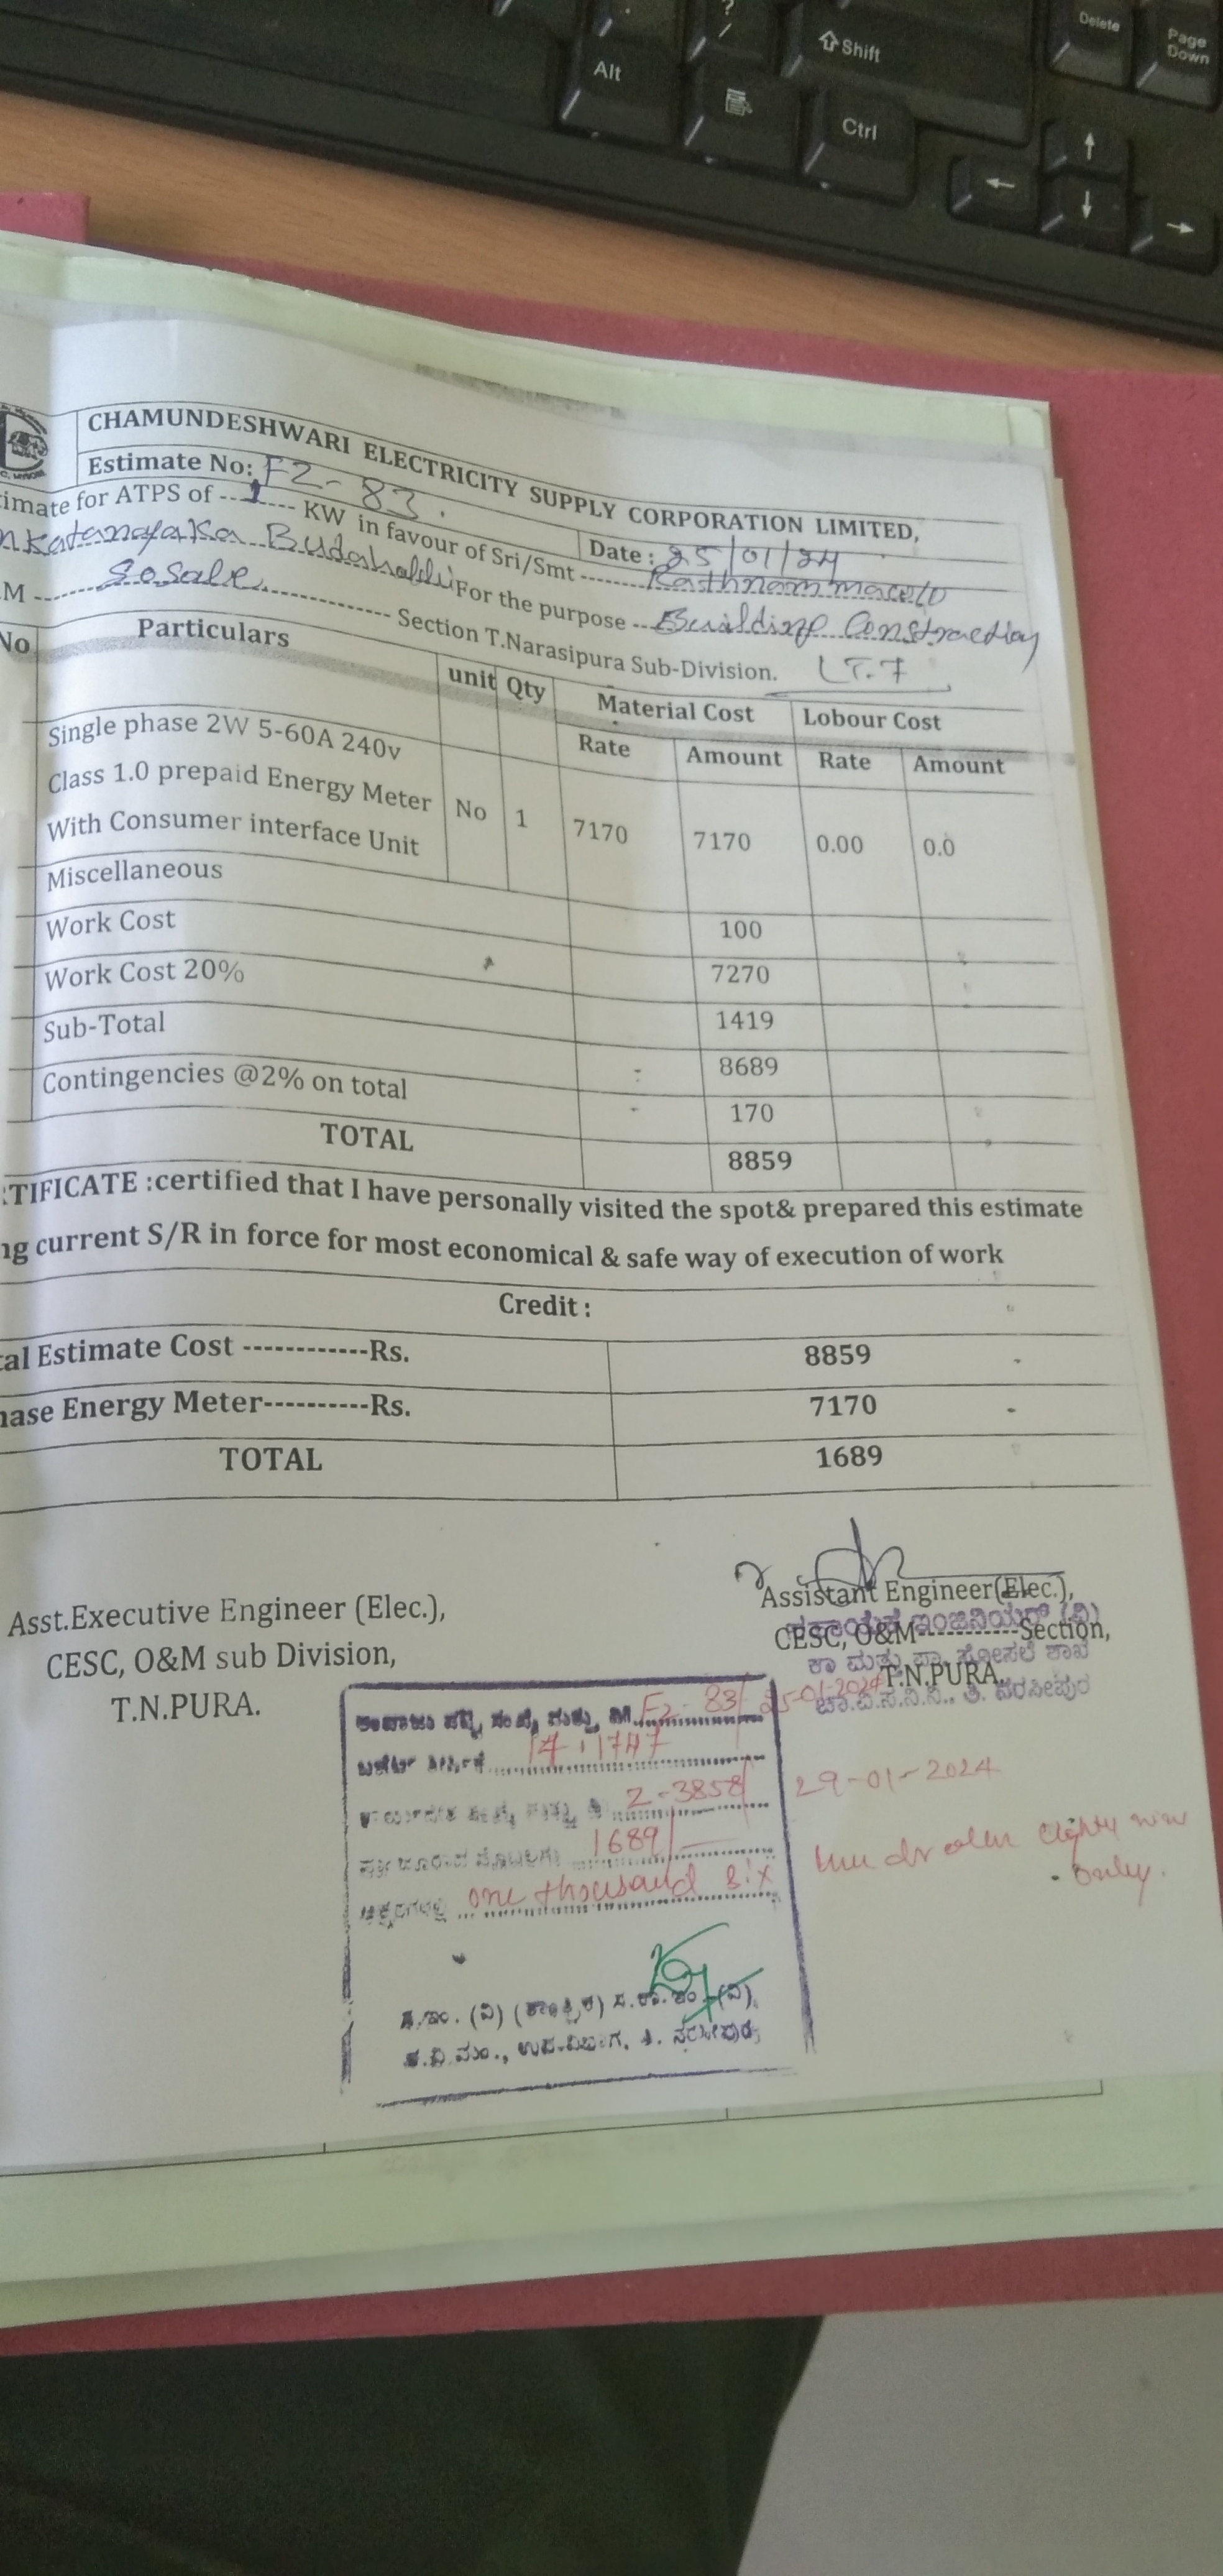 Delete
Page Down
? /
Shift
Alt
Ctrl
CHAMUNDESHWARI ELECTRICITY SUPPLY CORPORATION LIMITED,
Estimate No: F2-83.
Date : 25/01/24
imate for ATPS of ---1---- KW in favour of Sri/Smt -------
nkatanayaka Budahalli For the purpose -- Building Construction
M ------ Sosale ------------ Section T.Narasipura Sub-Division. LT-7
No Particulars unit Qty Material Cost Lobour Cost
Rate Amount Rate Amount
Single phase 2W 5-60A 240v
Class 1.0 prepaid Energy Meter
With Consumer interface Unit No 1 7170 7170 0.00 0.0
Miscellaneous 100
Work Cost 7270
Work Cost 20% 1419
Sub-Total 8689
Contingencies @2% on total 170
TOTAL 8859
TIFICATE :certified that I have personally visited the spot& prepared this estimate
ng current S/R in force for most economical & safe way of execution of work
Credit :
al Estimate Cost ------------Rs. 8859
hase Energy Meter----------Rs. 7170
TOTAL 1689
Assistant Engineer(Elec.),
Asst.Executive Engineer (Elec.),
ಸಹಾಯಕ ಇಂಜಿನಿಯರ್ (ವಿ)
CESC, O&M-----------Section,
CESC, O&M sub Division,
ಕಾ ಮತ್ತು ಪಾ ಸೋಸಲೆ ಶಾಖೆ
T.N.PURA.
T.N.PURA.
ಚಾ.ವಿ.ಸ.ನಿ.ನಿ., ತಿ. ನರಸೀಪುರ
ಅಂದಾಜು ಪಟ್ಟಿ ಸಂಖ್ಯೆ ಮತ್ತು ದಿ. F2-83/ 25-01-2024
14.1747
2-3858/ 29-01-2024
1689/-
one thousand six hundred eighty nine only.